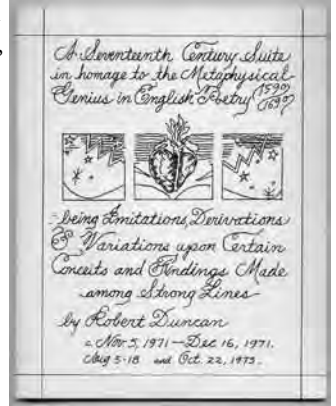 A Seventeenth Century Suite
in homage to the Metaphysical
Genius in English Poetry (1590/1690)
being Imitations, Derivations
& Variations upon Certain
Conceits and Findings Made
among Strong Lines
by Robert Duncan
Nov 5, 1971 – Dec 16, 1971.
Aug 5-18 and Oct. 22, 1973.